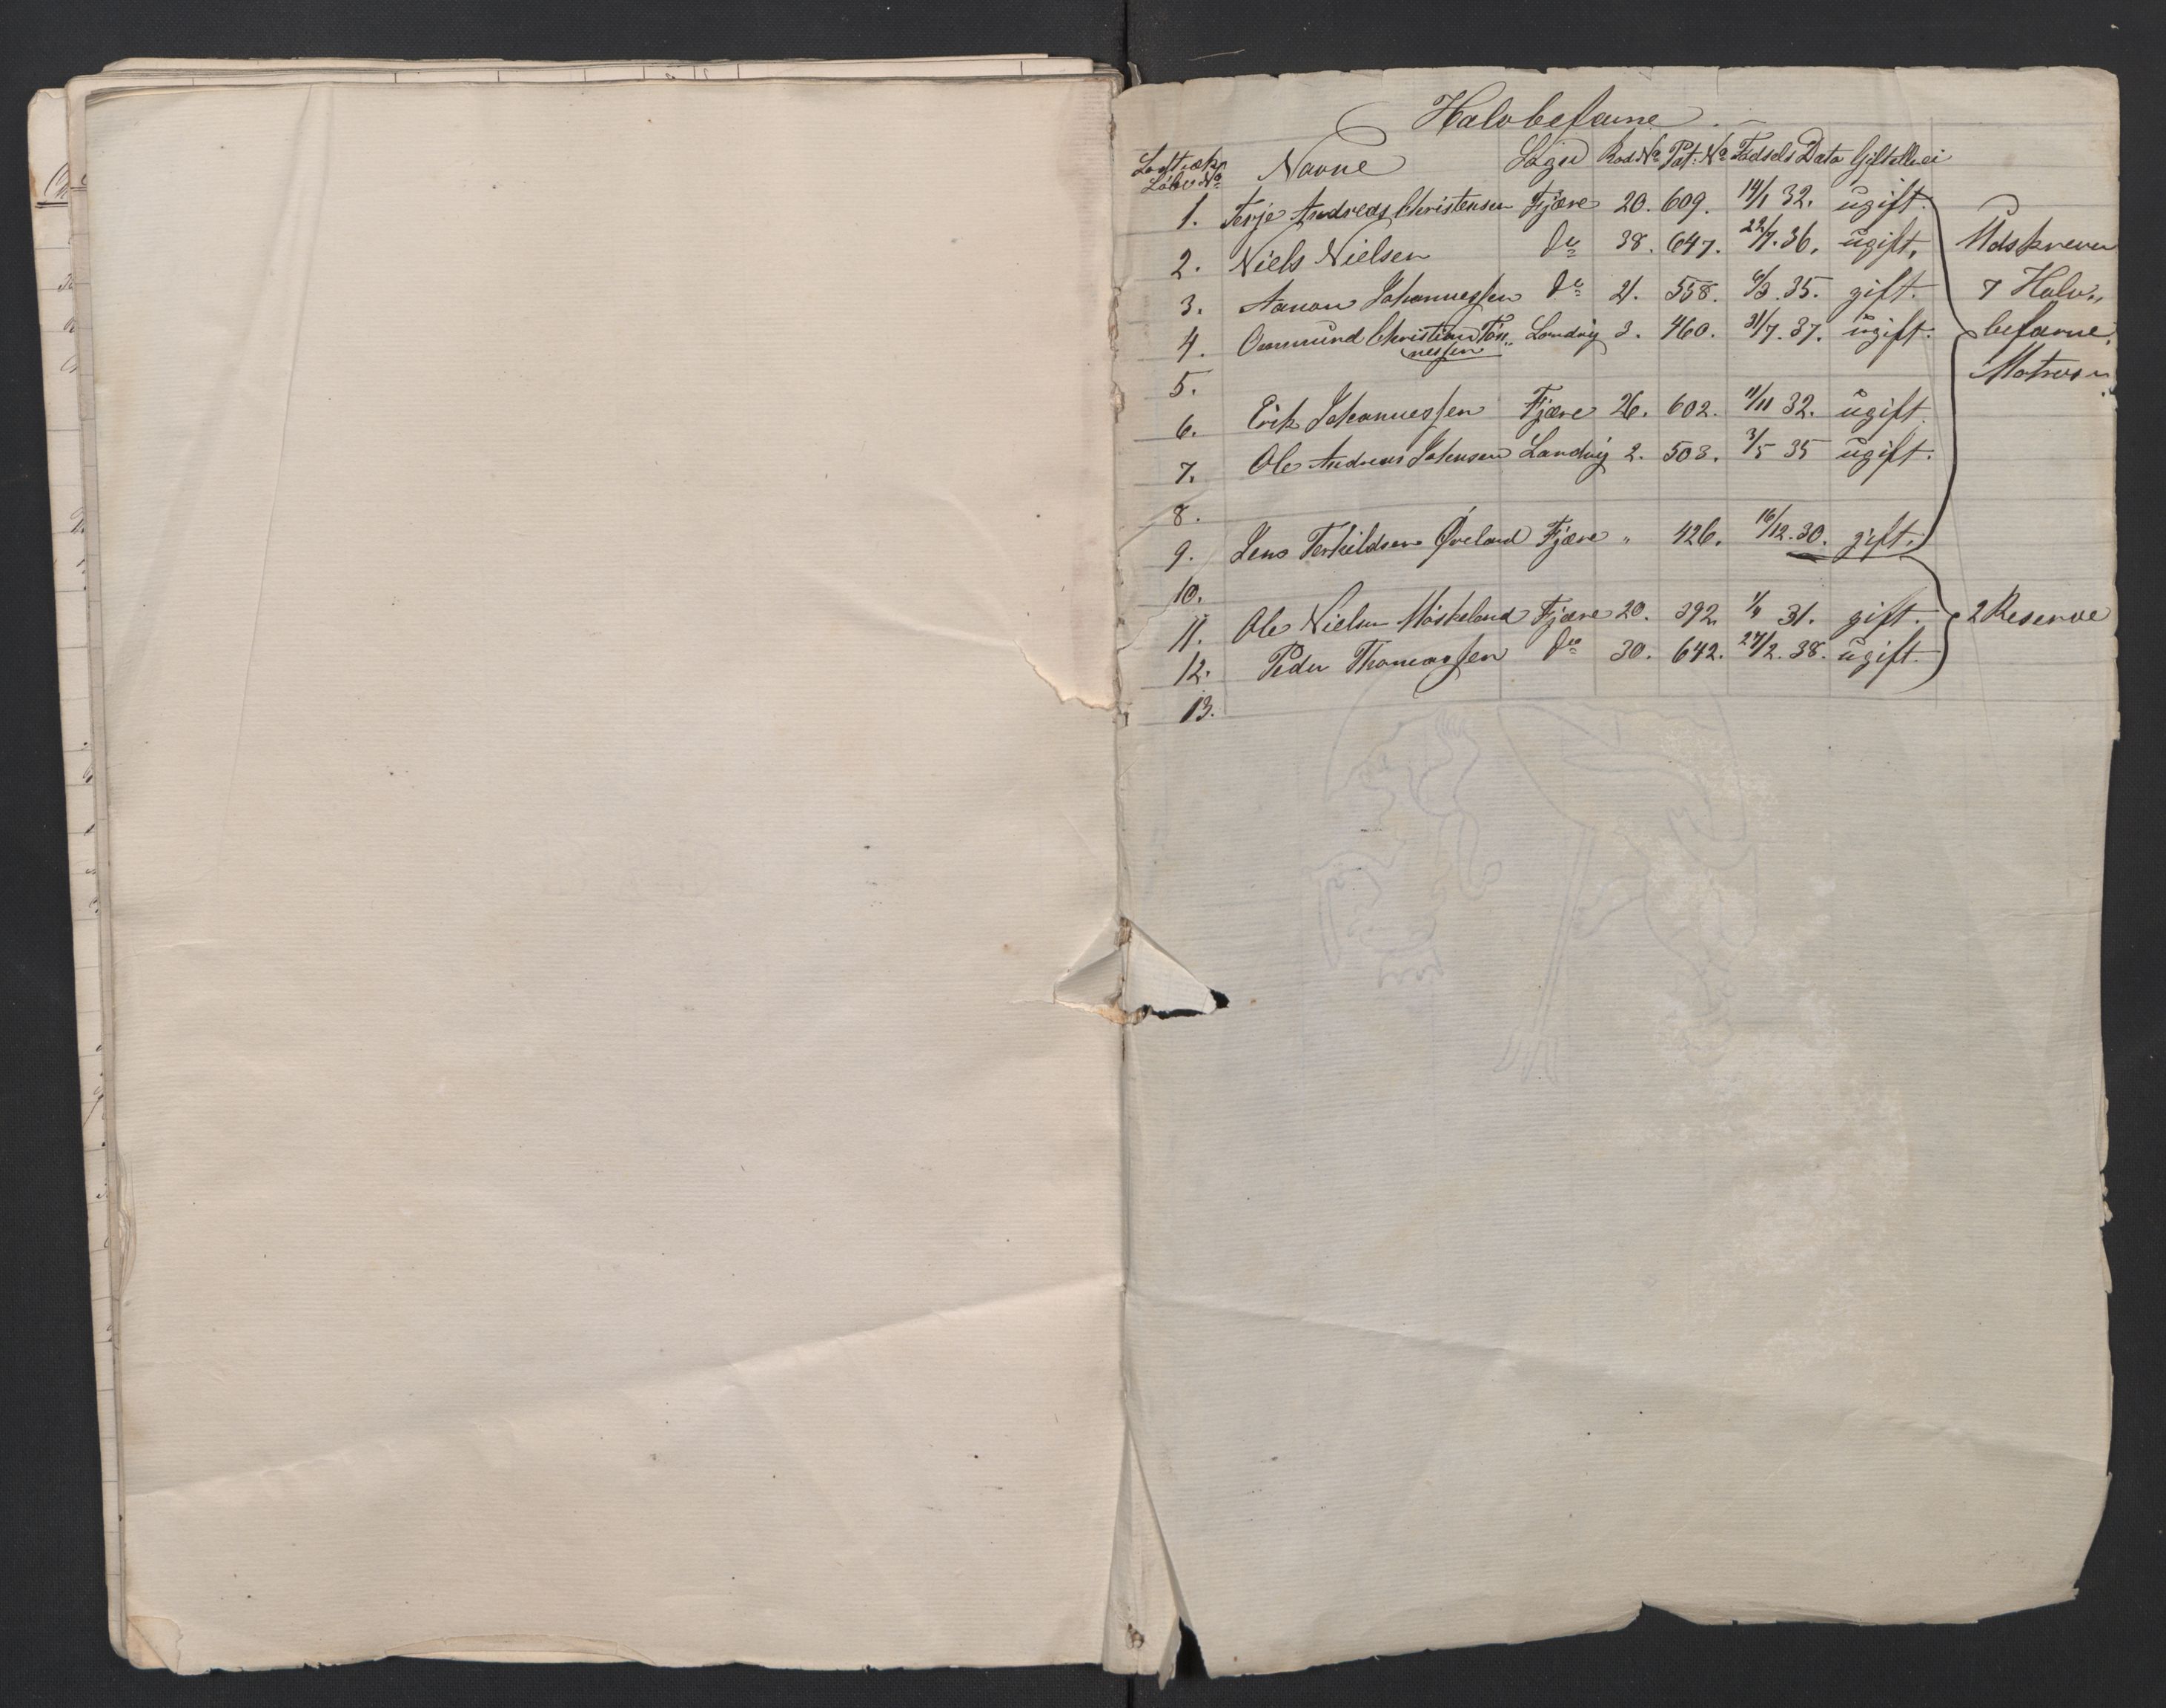 Halvbefarne.
Lodtrækn. Løbe No Navne Sogn Rod No Pat. No Fødsels Data Giftellei
1. Terje Andreas Christensen Fjære 20. 609. 14/1 32. ugift.
2. Niels Nielsen do 38. 647. 22/7. 36. ugift. Udskrevne
3. Aanon Johannessen do 21. 558. 6/3. 35. gift. 7 Halv„
4. Ommund Christian Tøn„ Landvig 3. 460. 31/7. 37. ugift. befarne
nessen Matroser
5.
6. Erik Johannessen Fjære 26. 602. 11/11 32. ugift.
7. Ole Andreas Johnsen Landvig 2. 503. 3/5 35 ugift.
8.
9. Jens Terkildsen Øveland Fjære „ 426. 16/12. 30. gift.
10.
11. Ole Nielsen Møskeland Fjære 20. 392. 31. gift. 2 Reserve
12. Peder Thomassen do 30. 642. 27/2. 38. ugift.
13.